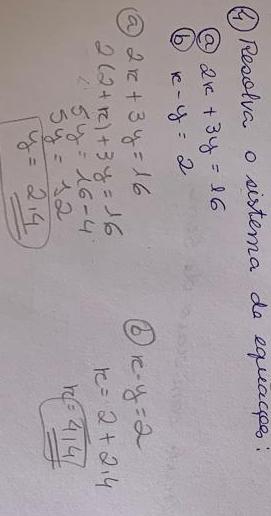 4) Resolva o sistema de equações:
a) 2x + 3y = 16
b) x - y = 2
a) 2x + 3y = 16
2(2+x) + 3y = 16
5y = 16 - 4
5y = 12
y = 2,4
b) x - y = 2
x = 2 + 2,4
x = 4,4